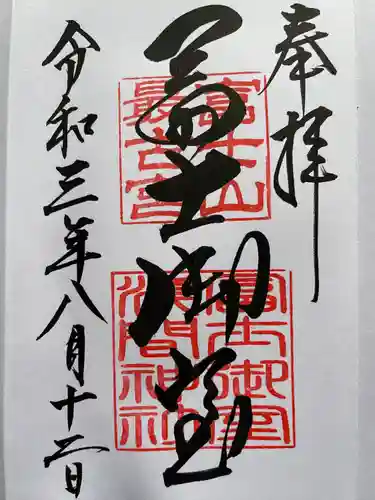 奉拝
富士御室
富士山
最古宮
富士御室
浅間神社
令和三年八月十二日